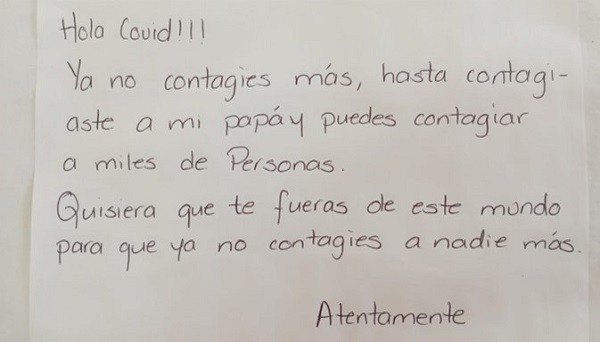 Hola Covid!!!
Ya no contagies más, hasta contagi-
aste a mi papá y puedes contagiar
a miles de Personas.
Quisiera que te fueras de este mundo
para que ya no contagies a nadie más.
Atentamente